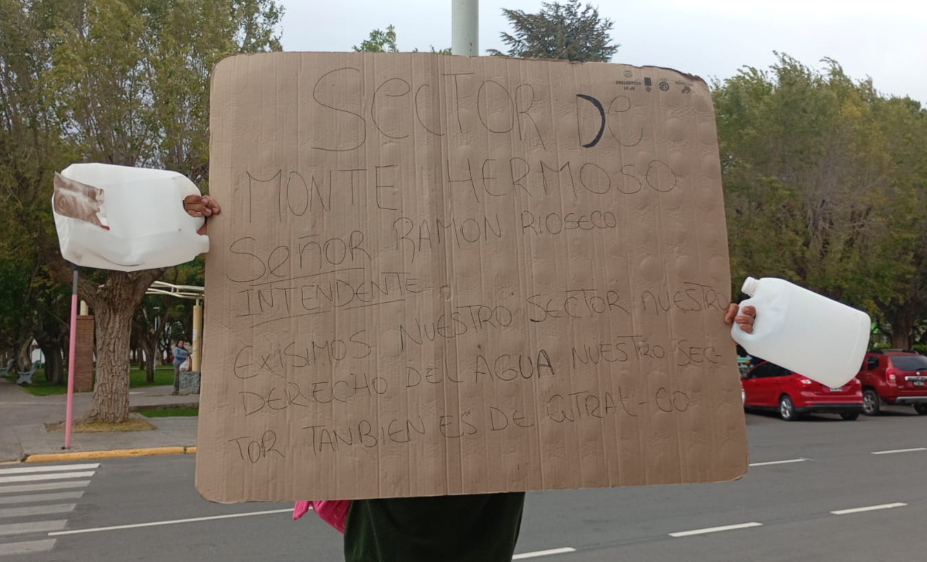 SECTOR DE
MONTE HERMOSO
SEÑOR RAMON RIOSECO
INTENDENTE.
EXISIMOS NUESTRO SECTOR NUESTRO
DERECHO DEL AGUA NUESTRO SEC-
TOR TANBIEN ES DE CUTRAL-CO